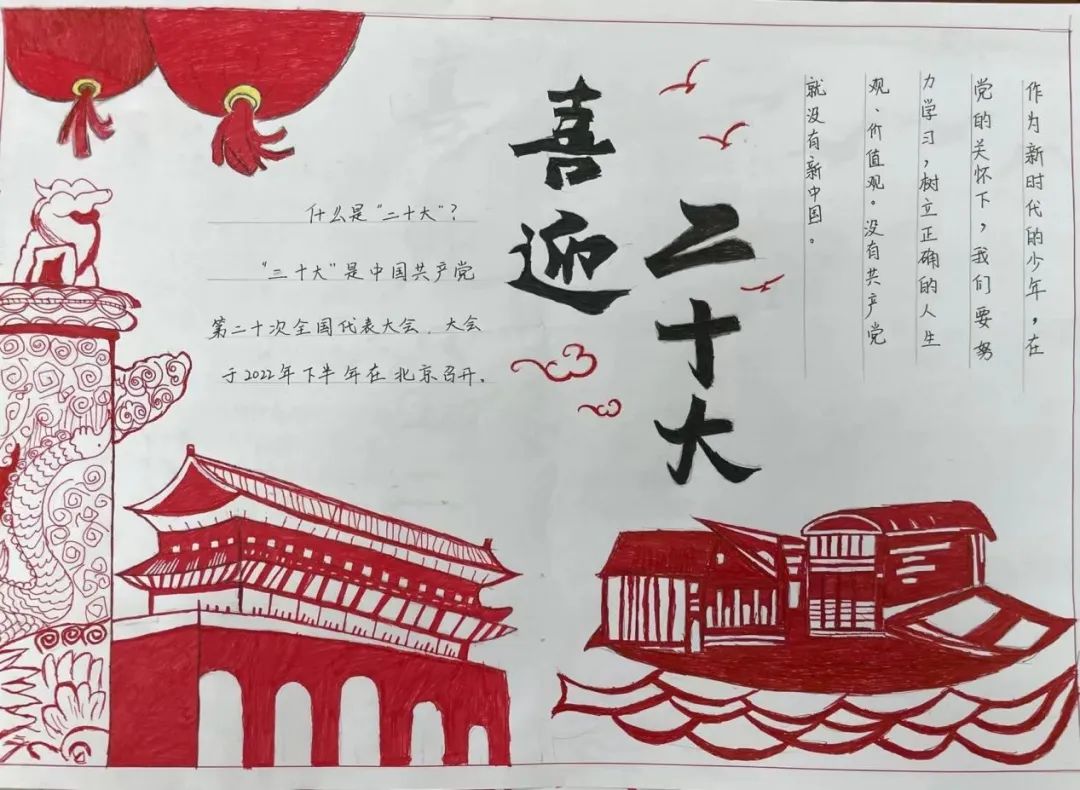 喜迎
二十大
什么是“二十大”？
“二十大”是中国共产党
第二十次全国代表大会．大会
于2022年下半年在北京召开．
作为新时代的少年，在
党的关怀下，我们要努
力学习，树立正确的人生
观、价值观。没有共产党
就没有新中国。